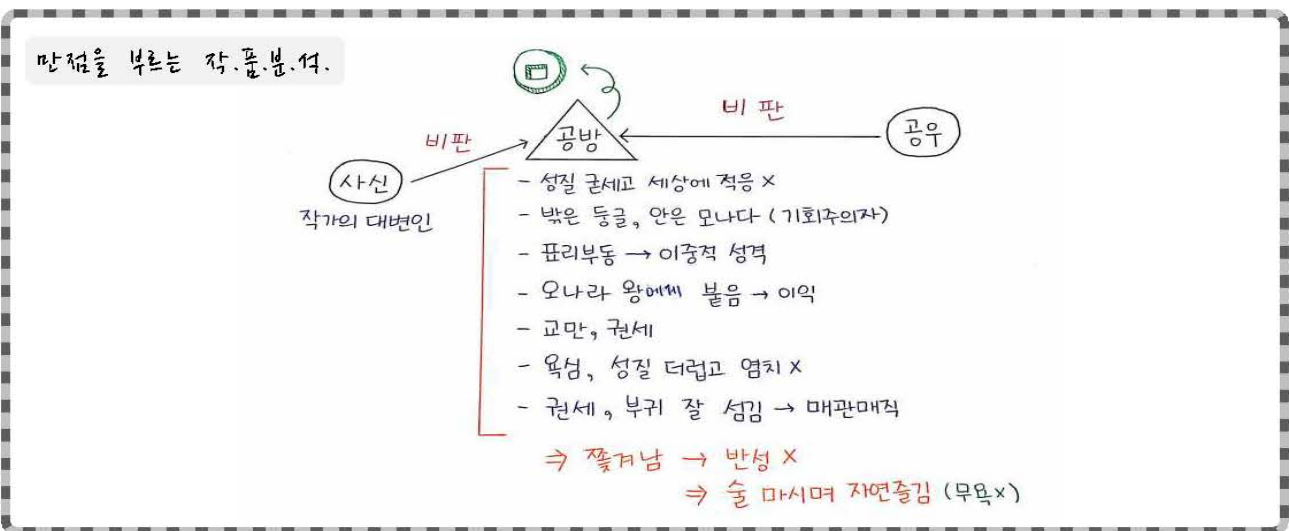 만점을 부르는 작.품.분.석.
비판
비판
공방
공우
사신
작가의 대변인
- 성질 굳세고 세상에 적응 X
- 밖은 둥글, 안은 모나다 (기회주의자)
- 표리부동 → 이중적 성격
- 오나라 왕에게 붙음 → 이익
- 교만, 권세
- 욕심, 성질 더럽고 염치 X
- 권세, 부귀 잘 섬김 → 매관매직
⇒ 쫓겨남 → 반성 X
⇒ 술 마시며 자연즐김 (무욕x)